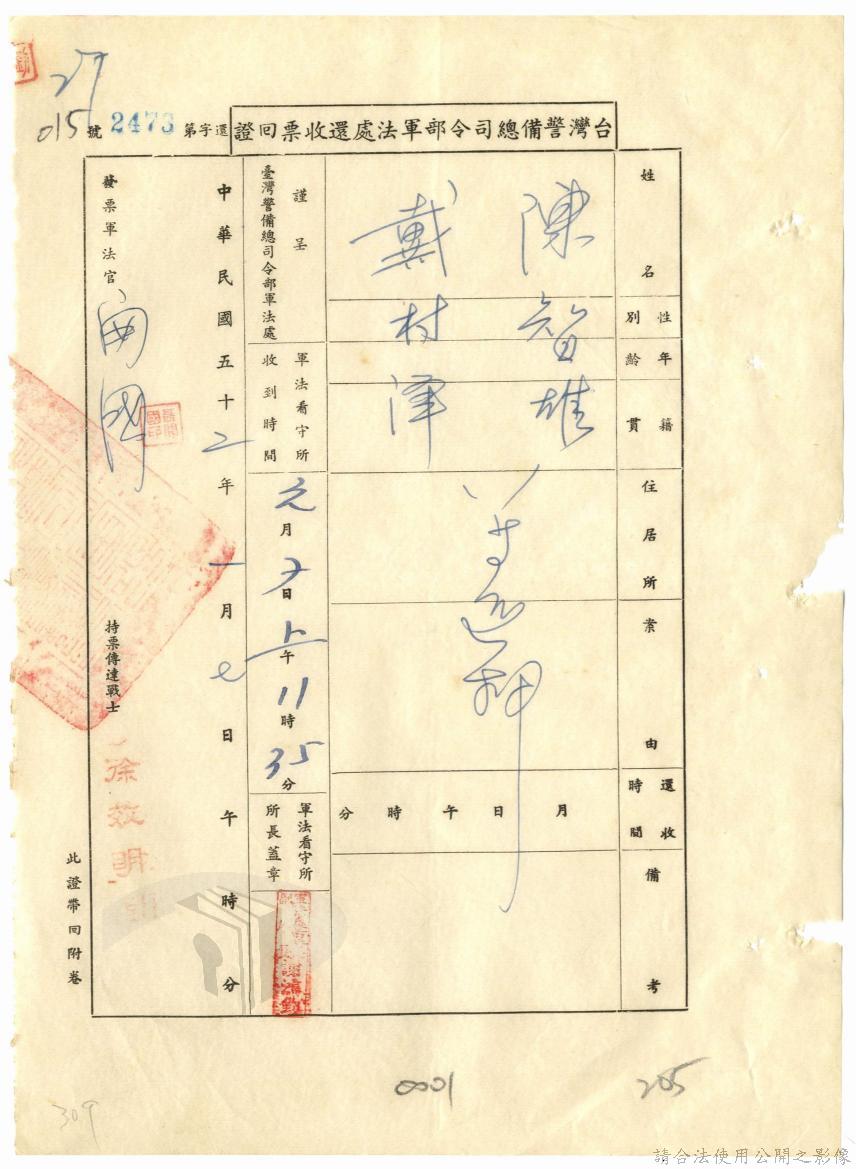 27
015
台灣警備總司令部軍法處還收票回證
還字第2473號
姓名
性別
年齡
籍貫
住居所
案由
還收時間
備考
陳智雄
戴村澤
等還押
月 日 午 時 分
謹呈
臺灣警備總司令部軍法處
軍法看守所收到時間
元月7日上午11時35分
軍法看守所所長蓋章
中華民國五十二年一月七日 午 時 分
發票軍法官
持票傳達戰士
徐
此證帶回附卷
0001
205
309
請合法使用公開之影像